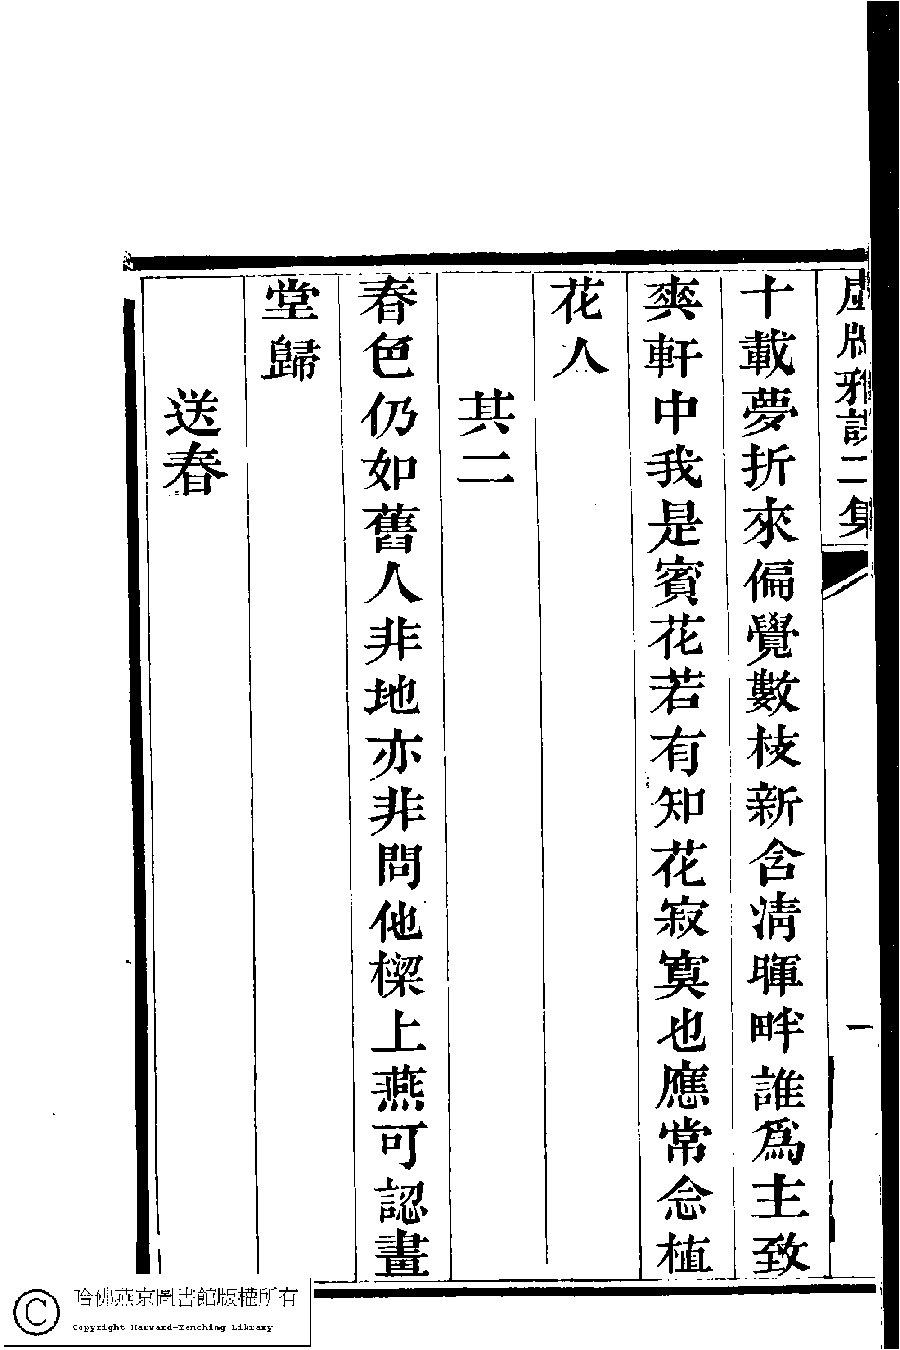 虛牕雅課二集
一
十載夢折來偏覺數枝新含清暉畔誰爲主致
爽軒中我是賓花若有知花寂寞也應常念植
花人
其二
春色仍如舊人非地亦非問他樑上燕可認畫
堂歸
送春
哈佛燕京圖書館版權所有
Copyright Harvard-Yenching Library